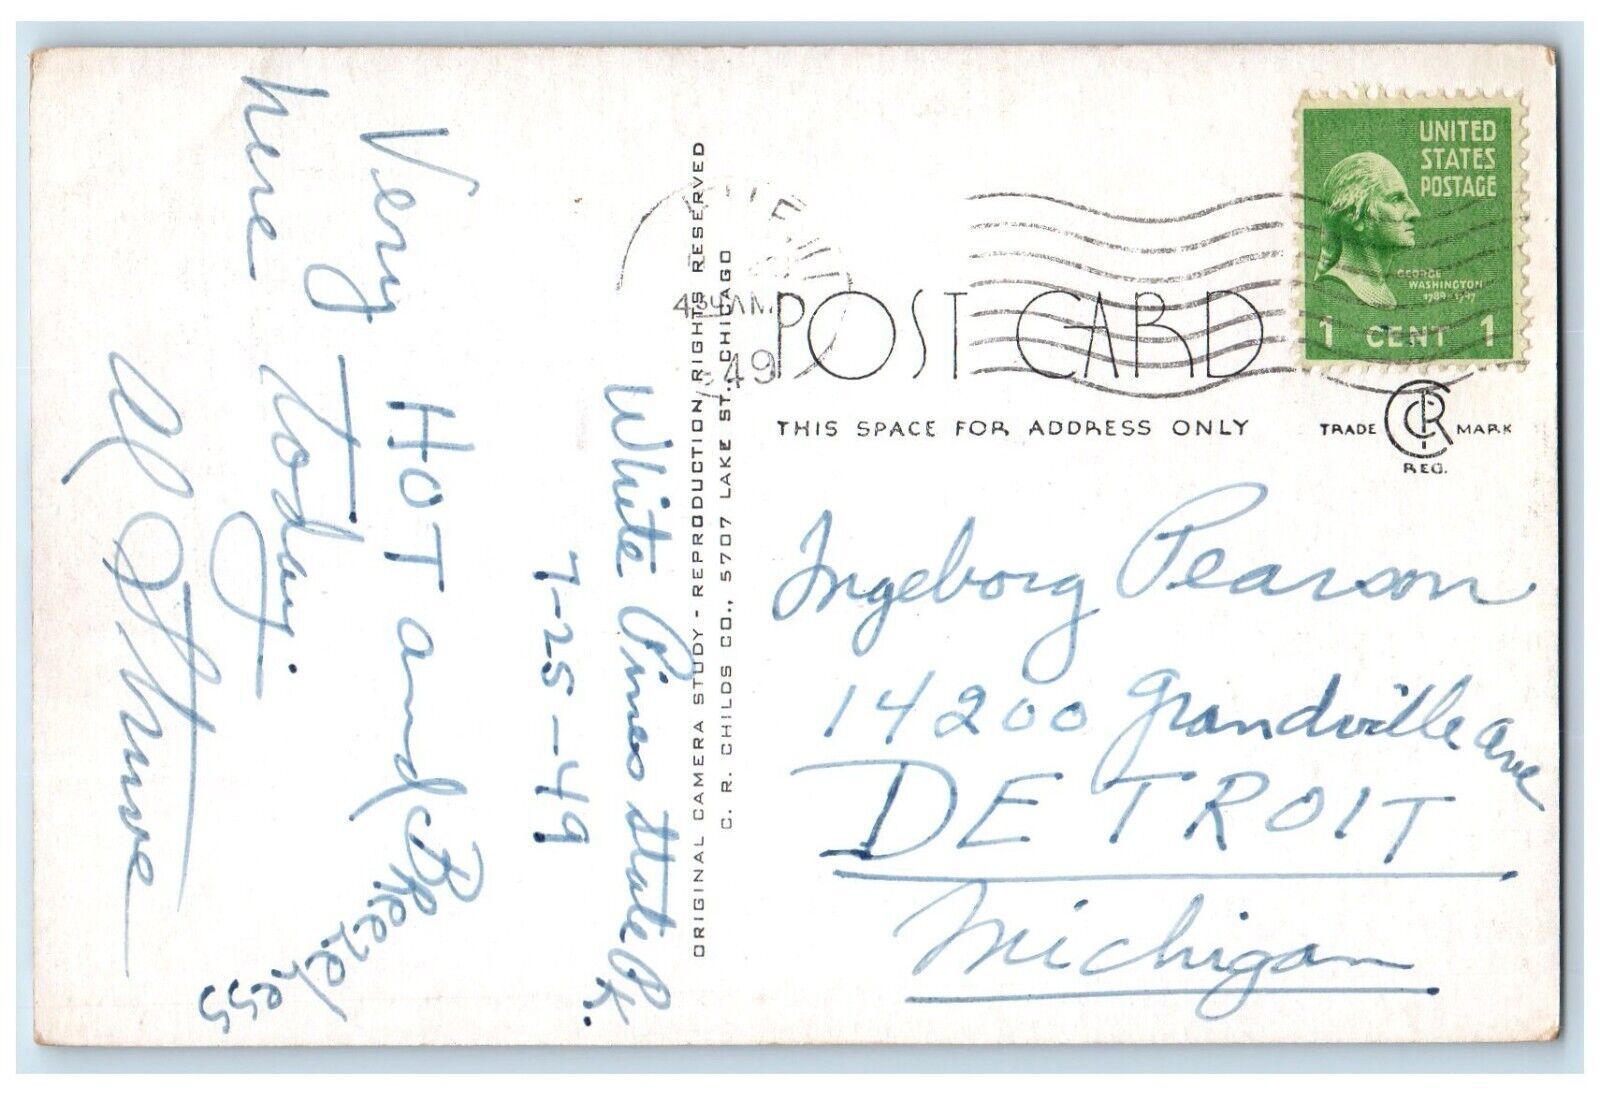 White Pines State Pk.
7-25-49
Very HOT and Breezeless
here today.
Al
ORIGINAL CAMERA STUDY - REPRODUCTION RIGHTS RESERVED
C. R. CHILDS CO., 5707 LAKE ST., CHICAGO
AM
49
UNITED
STATES
POSTAGE
GEORGE
WASHINGTON
1 CENT 1
POST CARD
THIS SPACE FOR ADDRESS ONLY
TRADE CRC MARK
REG.
Ingeborg Pearson
14200 Grandville Ave
DETROIT
Michigan